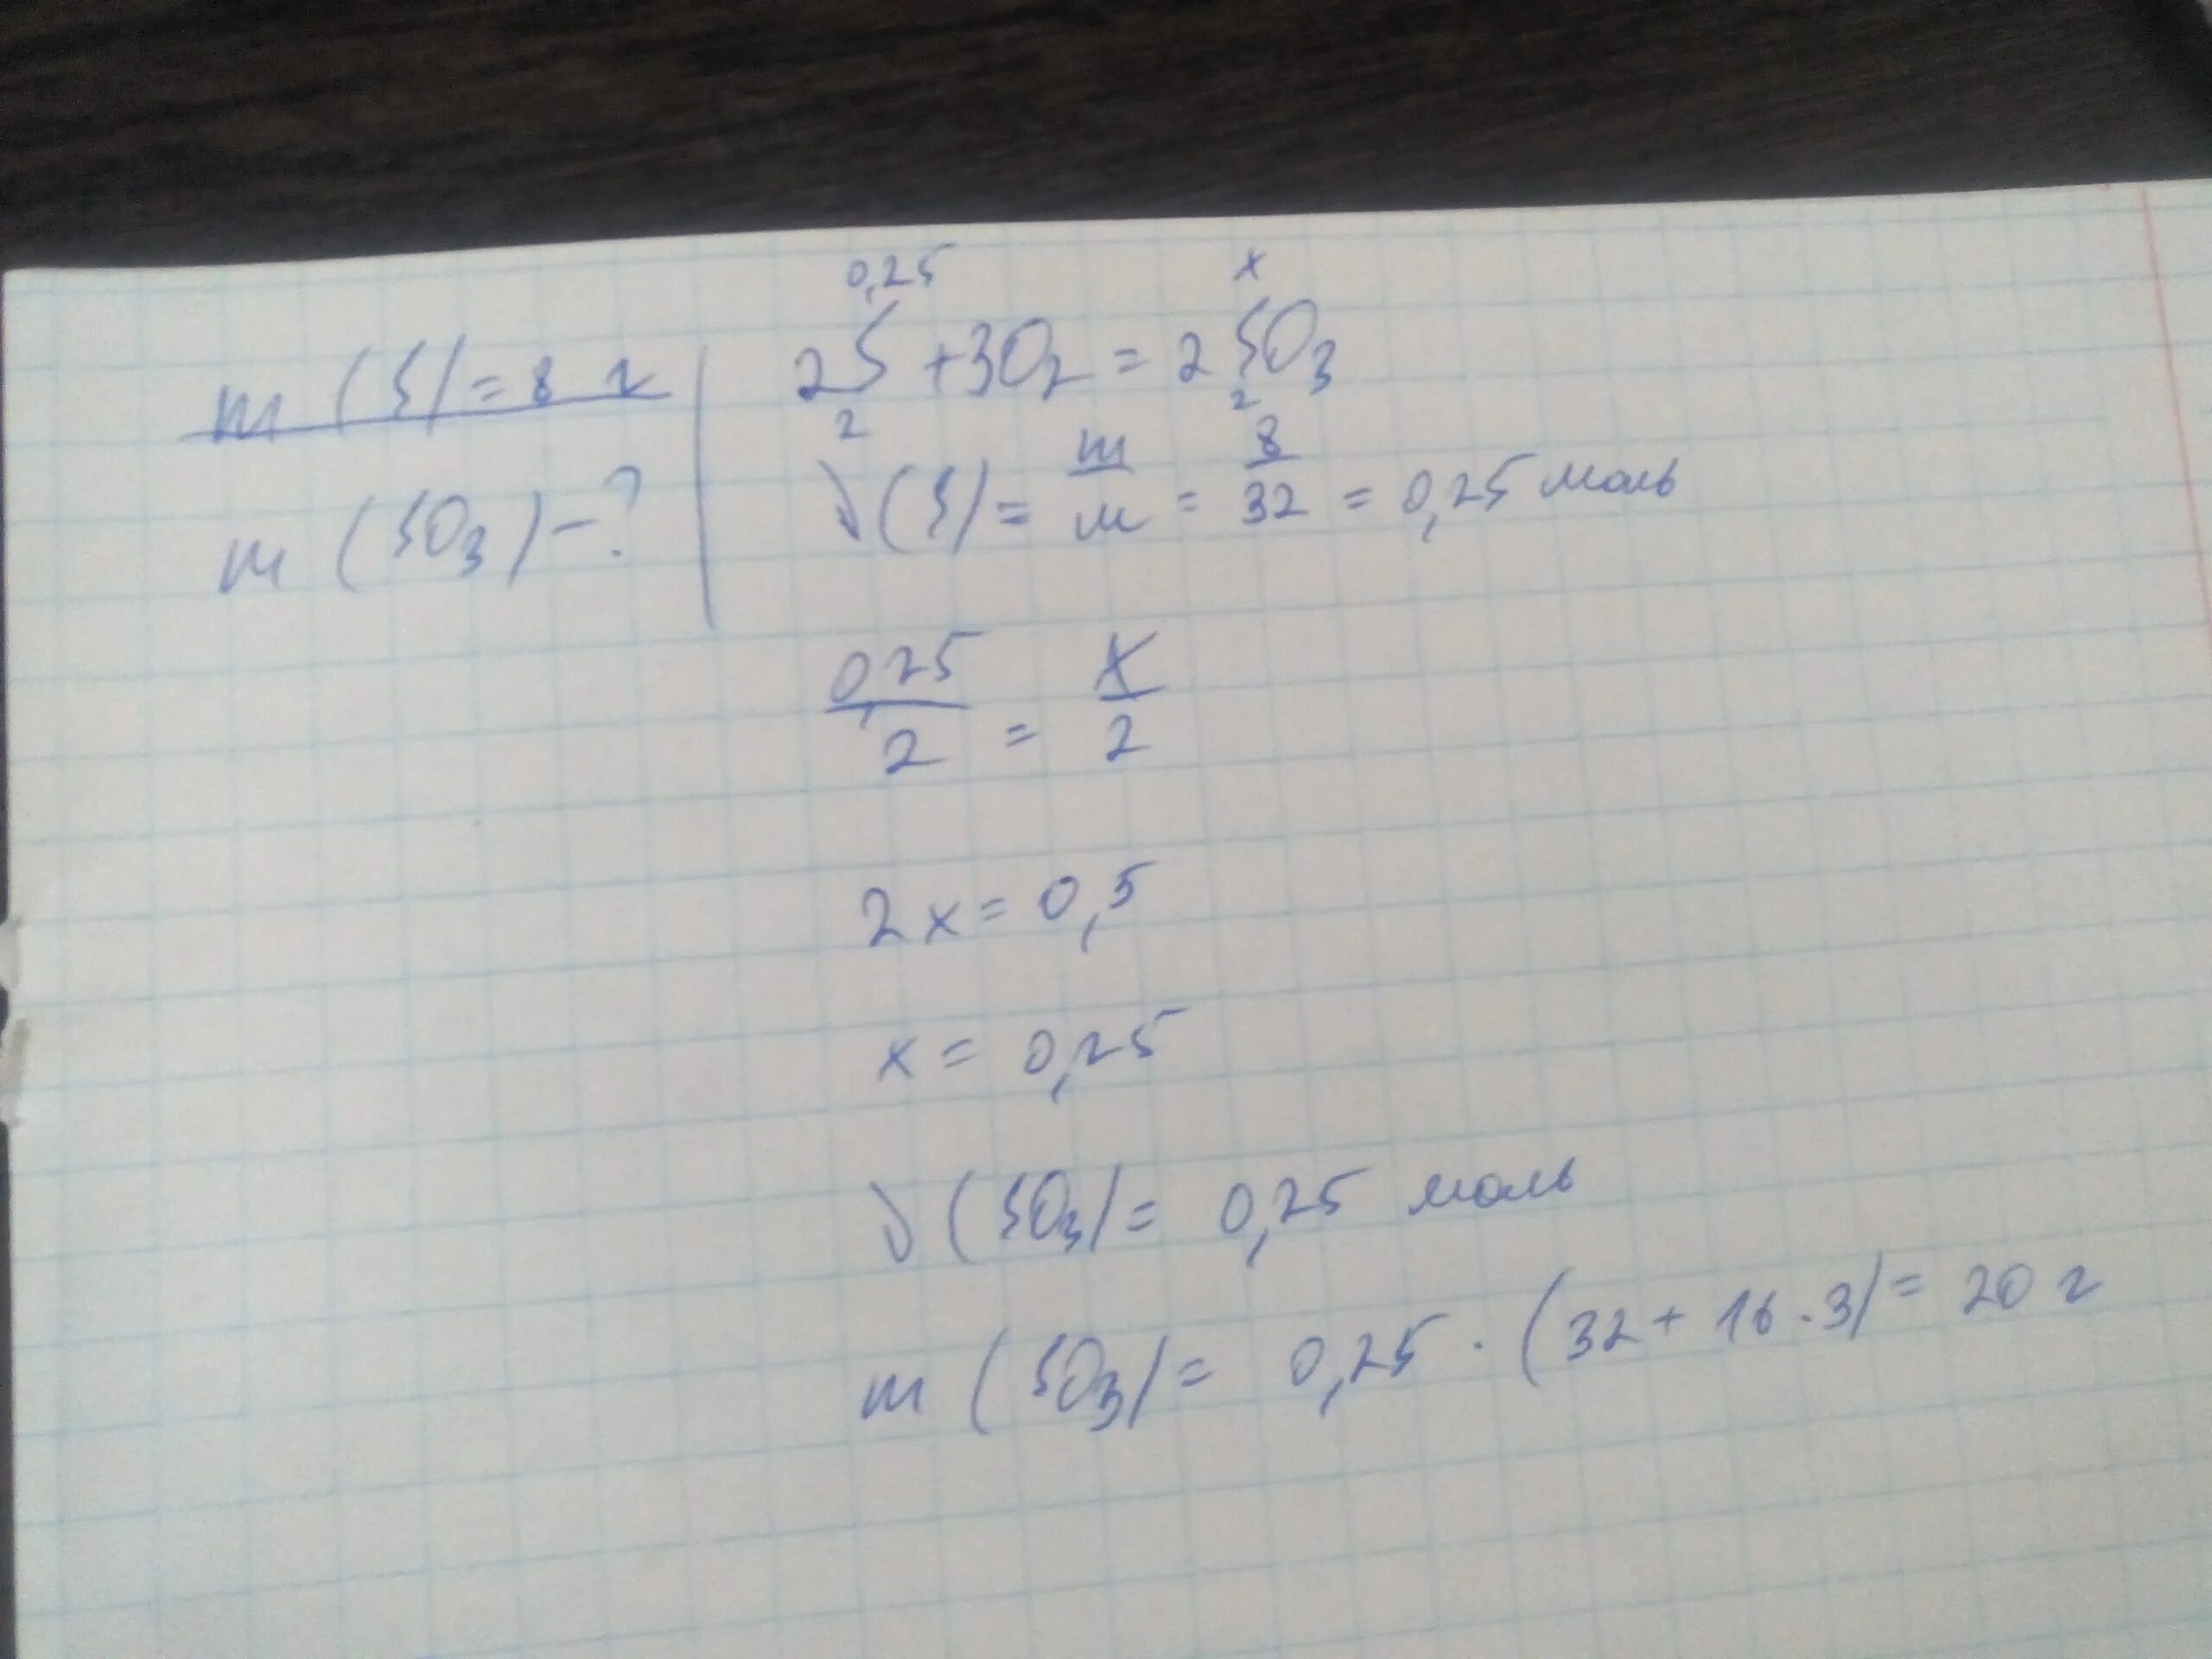 m (S) = 8 г
m (SO₃) - ?
0,25 x
2S + 3O₂ = 2SO₃
2 2
ν(S) = m/M = 8/32 = 0,25 моль
0,25/2 = x/2
2x = 0,5
x = 0,25
ν(SO₃) = 0,25 моль
m (SO₃) = 0,25 · (32 + 16 · 3) = 20 г